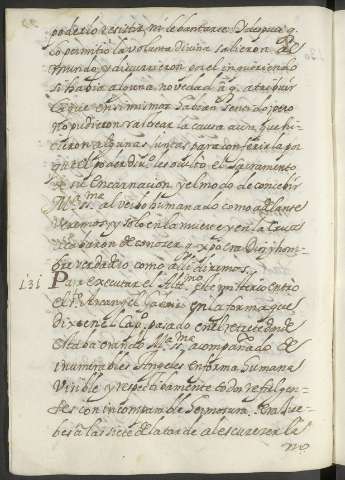 poderlo resistir, ni lebantarse. Y despues q.
lo permitio la voluntad divina salieron al
mundo, y discurrieron en el inquiriendo
si habia alguna novedad a q. atribuir
la que en si mismos habian sentido, pero
no pudieron rastrear la causa aunque hi-
cieron algunas juntas para conferirla por
que el poder div.º les oculto el sacramento
de su Encarnacion y el modo de concebir
M.ª SS.ma al verbo humanado como adelante
veremos, y solo en la muerte y en la Cruz
acabaron de conocer q. xpo era Dios y hom-
bre verdadero como alli diremos.
131 Para executar el Alt.mo este misterio entro
el S.to Arcangel Gabriel en la forma que
dixe en el Cap.º pasado en el retrete donde
estaba orando M.ª SS.ma acompañado de
innumerables Angeles en forma humana
visible y respectivamente todos refulgen-
tes con incomparable hermosura. Era Jue-
bes a las siete de la tarde al escurecer la
no